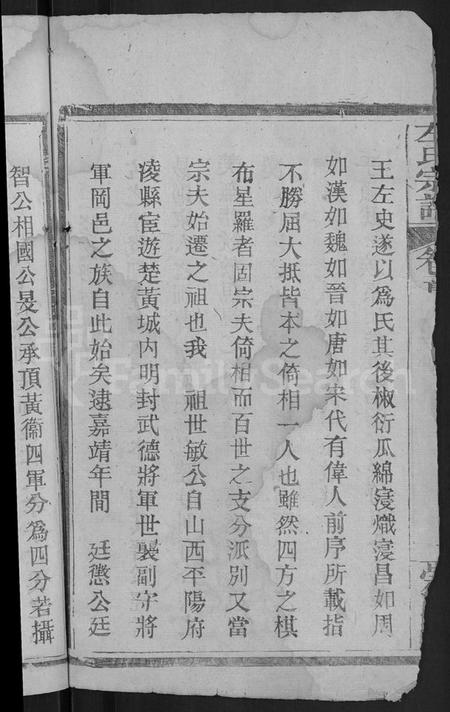 左氏宗譜
卷首
王左史遂以爲氏其後椒衍瓜綿寖熾寖昌如周
如漢如魏如晉如唐如宋代有偉人前序所載指
不勝屈大抵皆本之倚相一人也雖然四方之棋
布星羅者固宗夫倚相而百世之支分派別又當
宗夫始遷之祖也我 祖世敏公自山西平陽府
凌縣宦遊楚黃城內明封武德將軍世襲副守將
軍岡邑之族自此始矣逮嘉靖年間 廷懲公廷
智公相國公旻公承頂黃衞四軍分爲四分若攝
FamilySearch